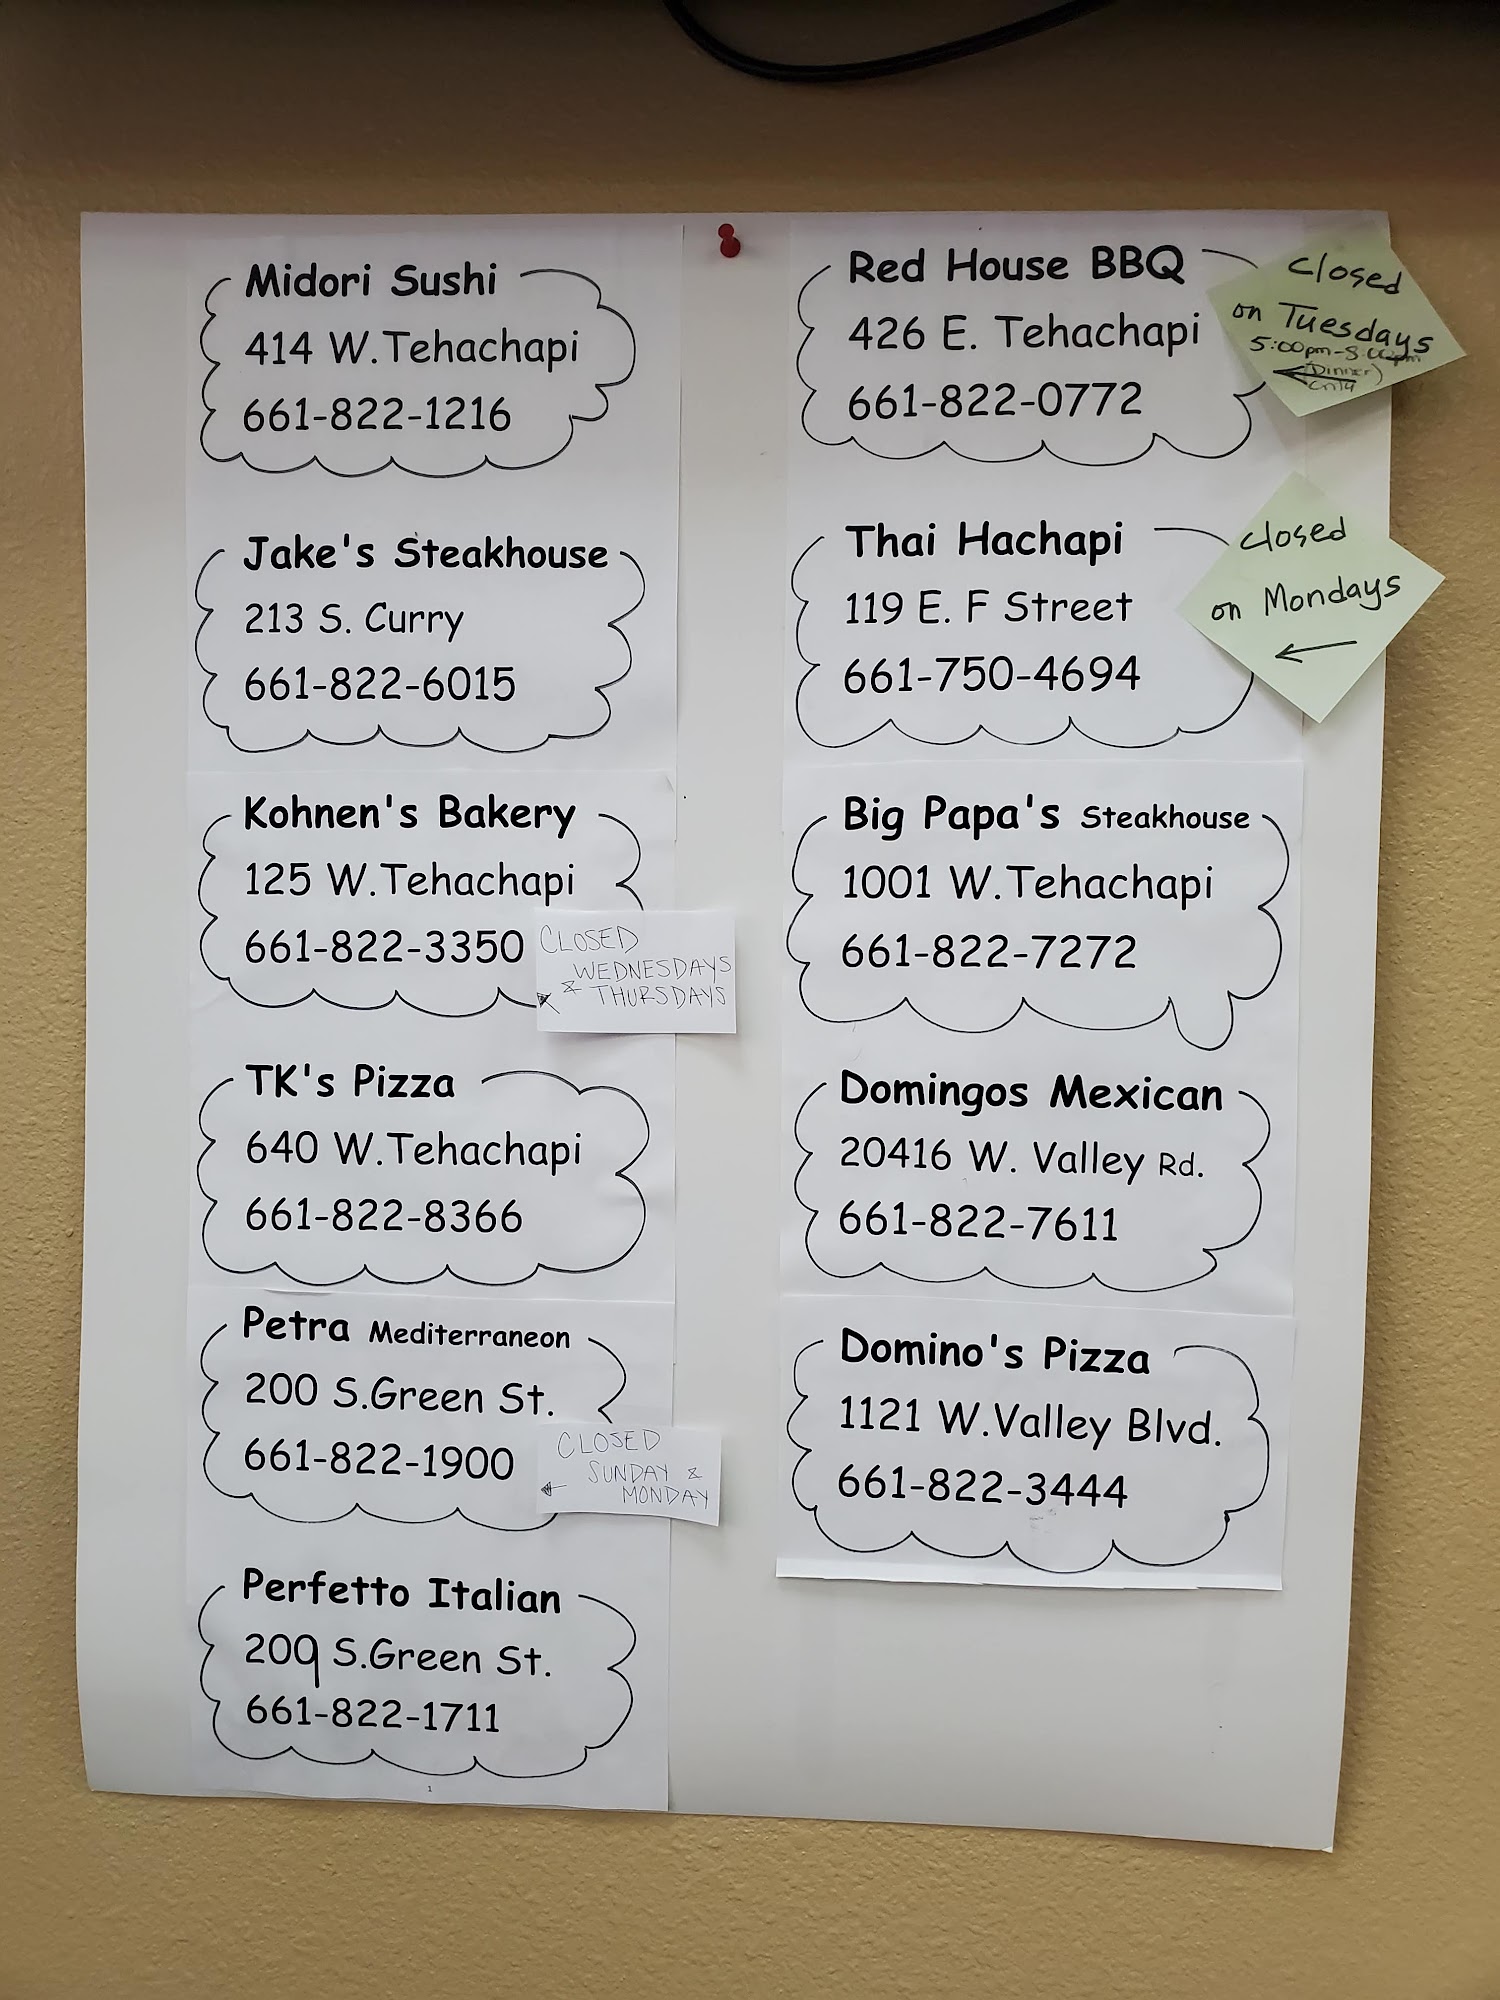 Midori Sushi
414 W.Tehachapi
661-822-1216
Jake's Steakhouse
213 S. Curry
661-822-6015
Kohnen's Bakery
125 W.Tehachapi
661-822-3350
CLOSED
WEDNESDAYS
& THURSDAYS
TK's Pizza
640 W.Tehachapi
661-822-8366
Petra Mediterraneon
200 S.Green St.
661-822-1900
CLOSED
SUNDAY &
MONDAY
Perfetto Italian
209 S.Green St.
661-822-1711
1
Red House BBQ
426 E. Tehachapi
661-822-0772
Closed
on Tuesdays
5:00pm-8:00pm
(Dinner)
only
Thai Hachapi
119 E. F Street
661-750-4694
Closed
on Mondays
Big Papa's Steakhouse
1001 W.Tehachapi
661-822-7272
Domingos Mexican
20416 W. Valley Rd.
661-822-7611
Domino's Pizza
1121 W.Valley Blvd.
661-822-3444